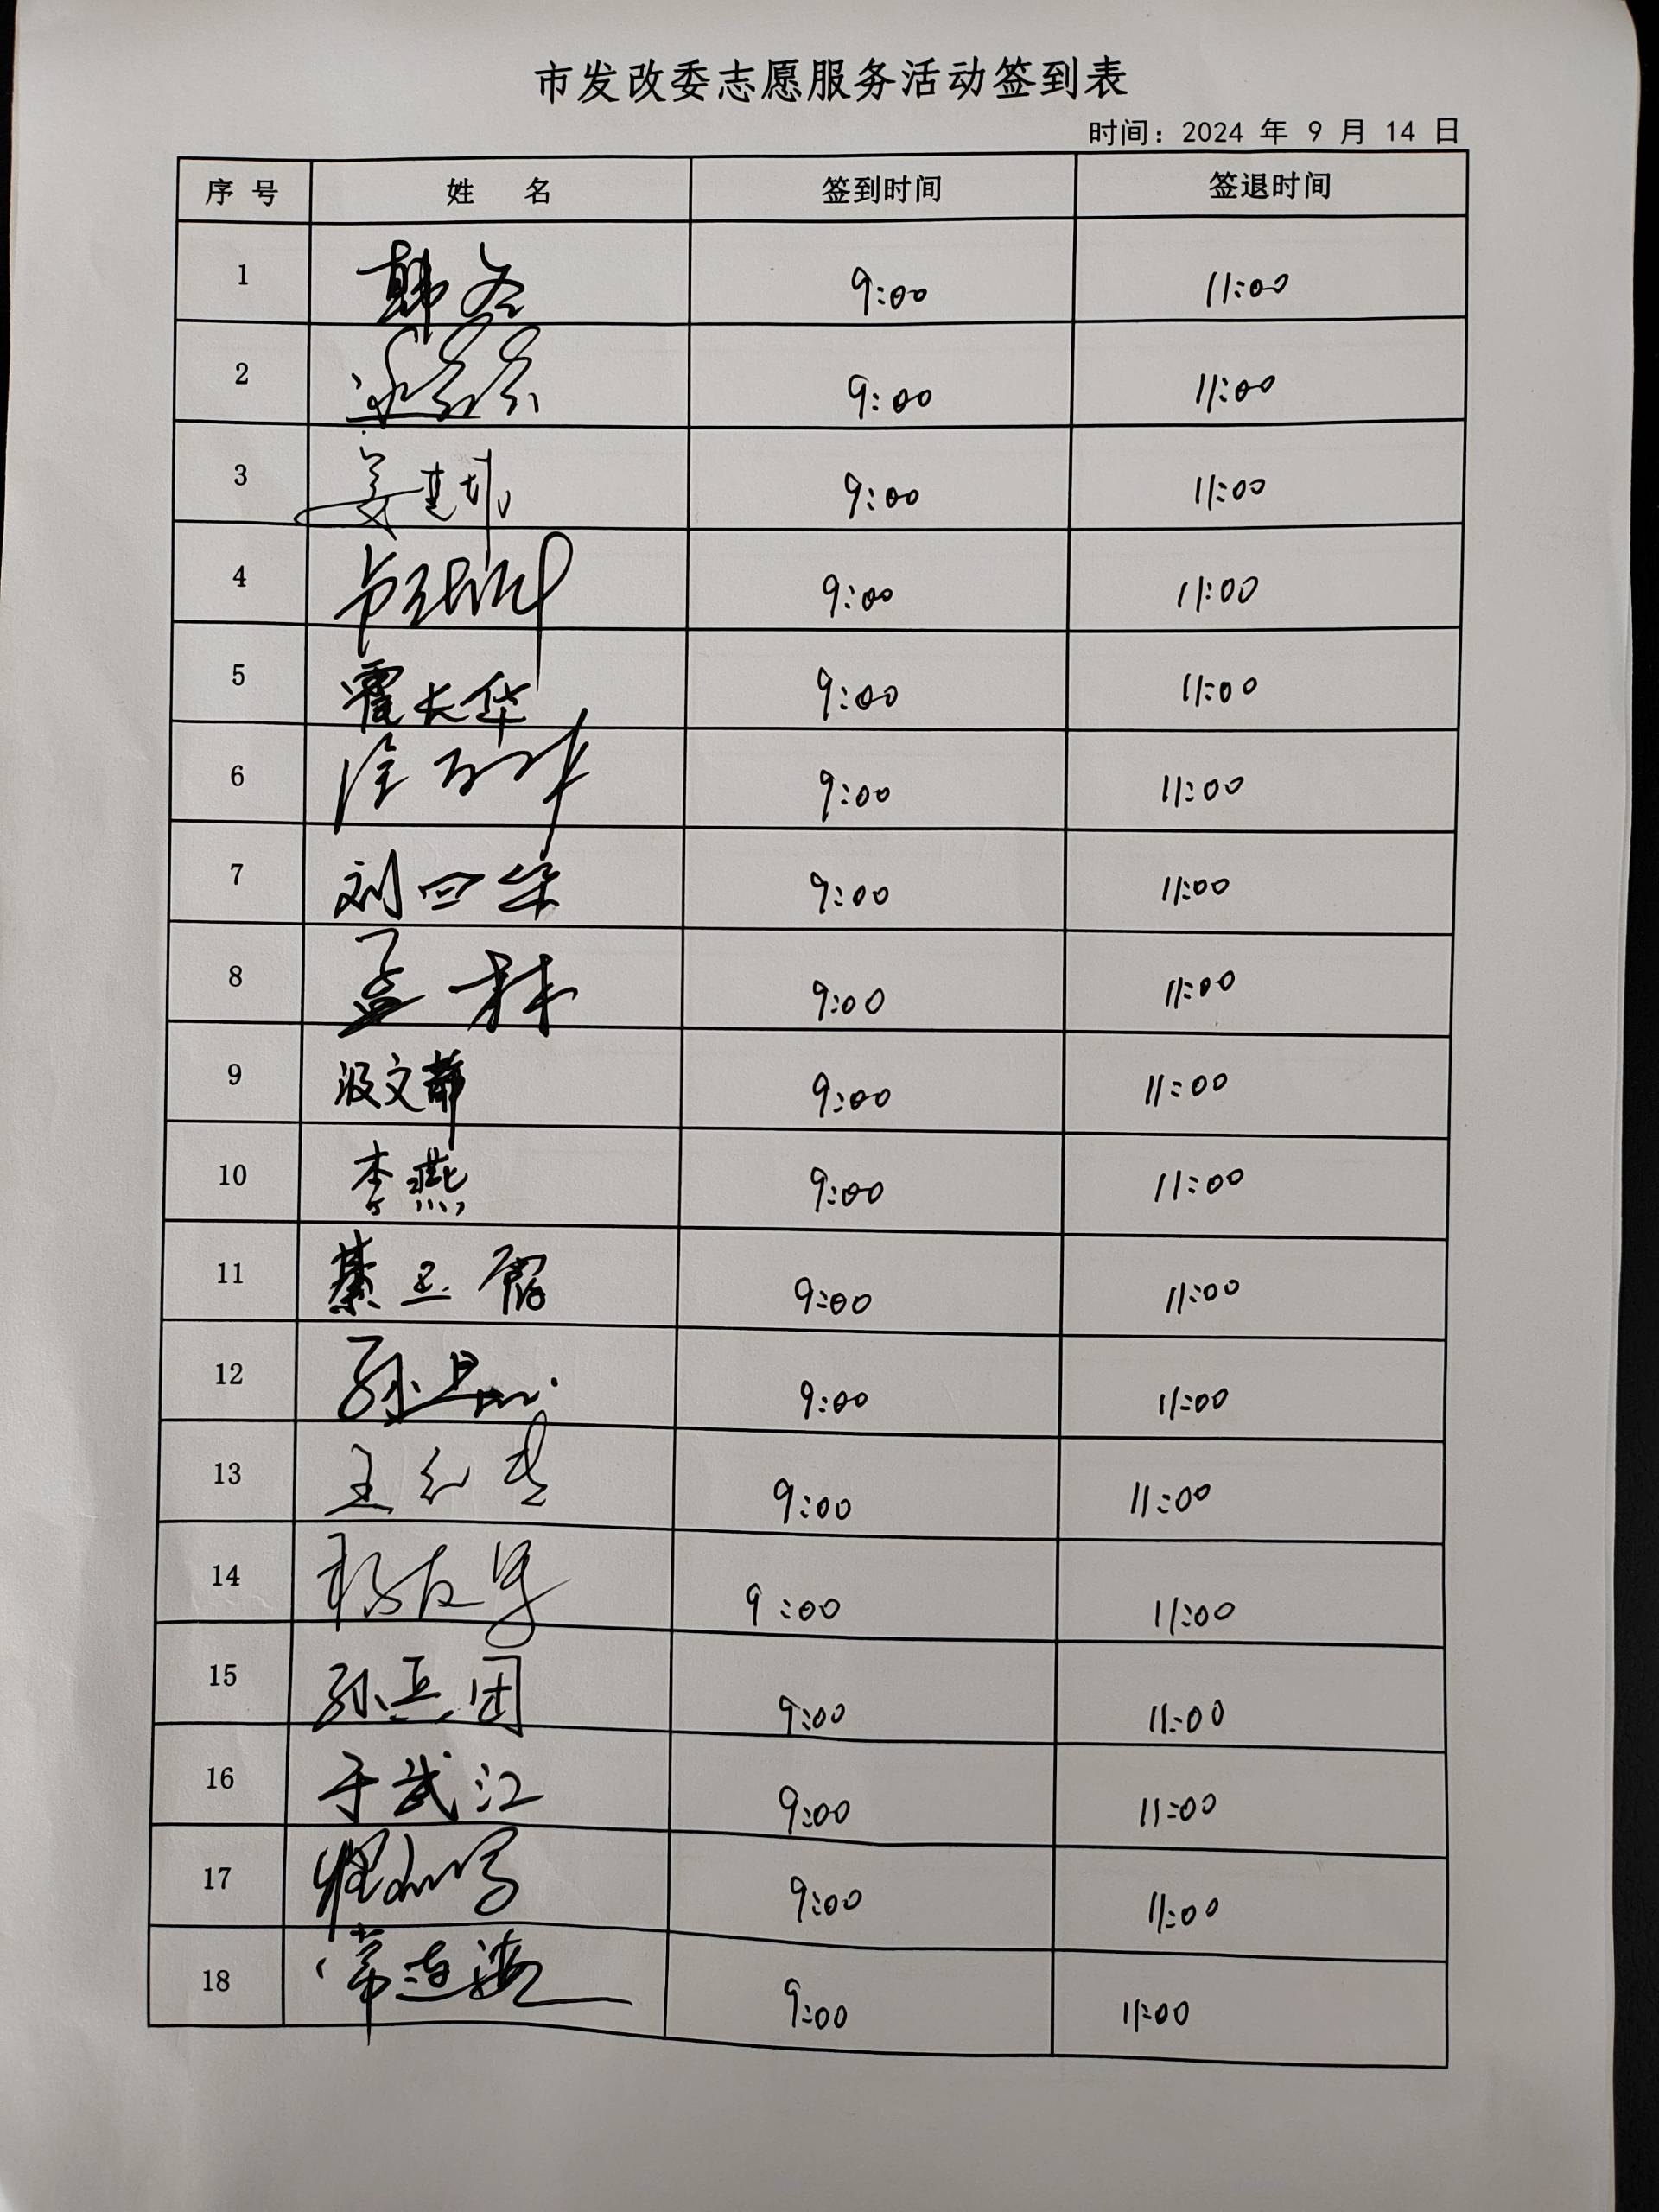 市发改委志愿服务活动签到表
时间：2024 年 9 月 14 日
序 号 姓 名 签到时间 签退时间
1 韩冬 9:00 11:00
2 9:00 11:00
3 姜 9:00 11:00
4 9:00 11:00
5 霍大华 9:00 11:00
6 9:00 11:00
7 刘四华 9:00 11:00
8 孟林 9:00 11:00
9 汲文 9:00 11:00
10 李燕 9:00 11:00
11 綦 9:00 11:00
12 孙 9:00 11:00
13 王红 9:00 11:00
14 杨友 9:00 11:00
15 孙兵团 9:00 11:00
16 于武江 9:00 11:00
17 9:00 11:00
18 常连海 9:00 11:00